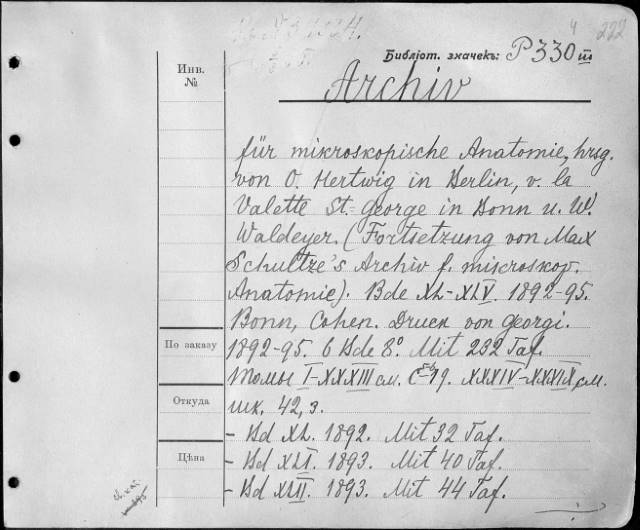 4 222
Библіот. значекъ: P330 III
Инв.
№
Archiv
für mikroskopische Anatomie, hrsg.
von O. Hertwig in Berlin, v. la
Valette St. George in Bonn u. W.
Waldeyer. (Fortsetzung von Max
Schultze's Archiv f. mikroskop.
Anatomie). Bde XL-XLV. 1892-95.
Bonn, Cohen. Druck von Georgi.
По заказу
1892-95. 6 Bde 8º. Mit 232 Taf.
Томы I-XXXIII см. XXXIV-XXXIX см.
Откуда
шк. 42, 3.
- Bd XL. 1892. Mit 32 Taf.
Цѣна
- Bd XLI. 1893. Mit 40 Taf.
- Bd XLII. 1893. Mit 44 Taf.